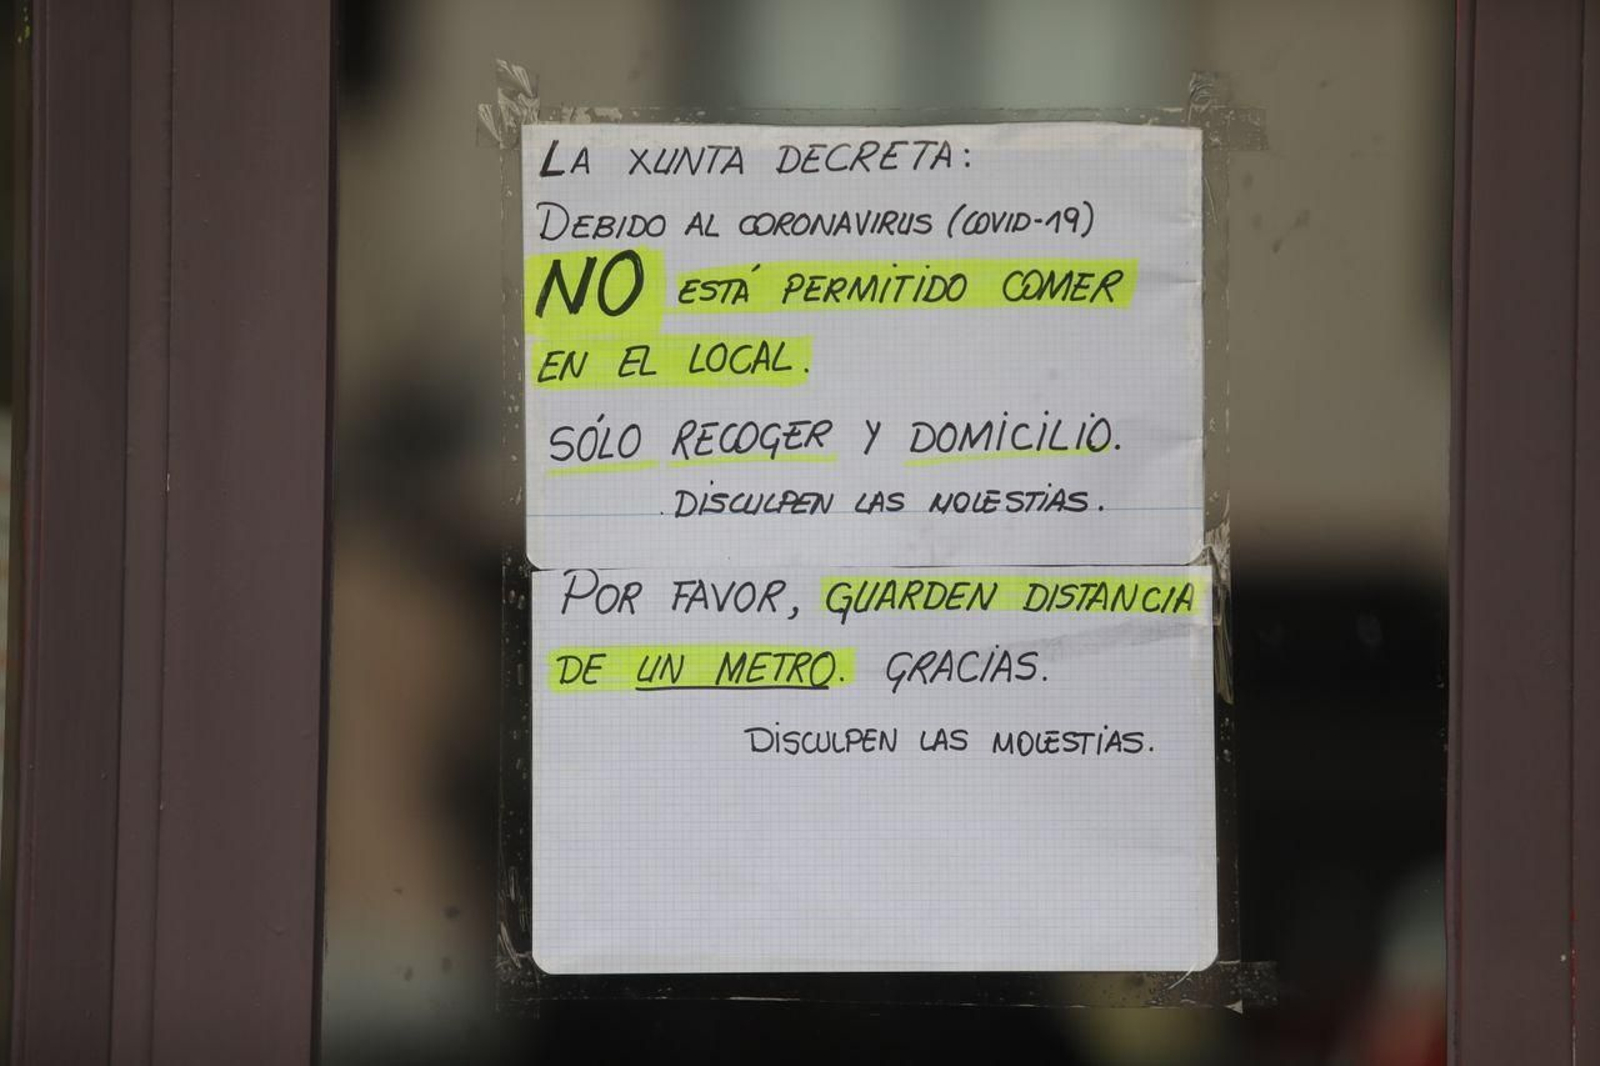 LA XUNTA DECRETA:
DEBIDO AL CORONAVIRUS (COVID-19)
NO ESTÁ PERMITIDO COMER
EN EL LOCAL.
SÓLO RECOGER Y DOMICILIO.
. DISCULPEN LAS MOLESTIAS.
POR FAVOR, GUARDEN DISTANCIA
DE UN METRO. GRACIAS.
DISCULPEN LAS MOLESTIAS.